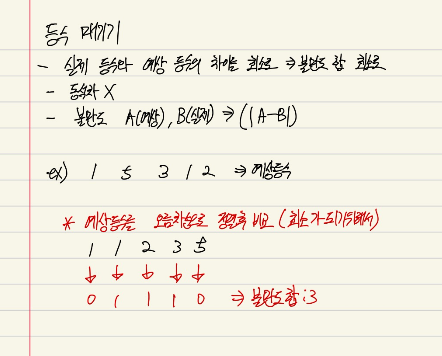 등수 매기기
- 실제 등수와 예상 등수의 차이를 최소로 → 불만도 합 최소로
- 동석차 X
- 불만도 A(예상), B(실제) ⇒ (|A-B|)
ex) 1 5 3 1 2 ⇒ 예상등수
* 예상등수를 오름차순으로 정렬후 비교 (최소가 되기 위해서)
1 1 2 3 5
↓ ↓ ↓ ↓ ↓
0 1 1 1 0 ⇒ 불만도합 : 3